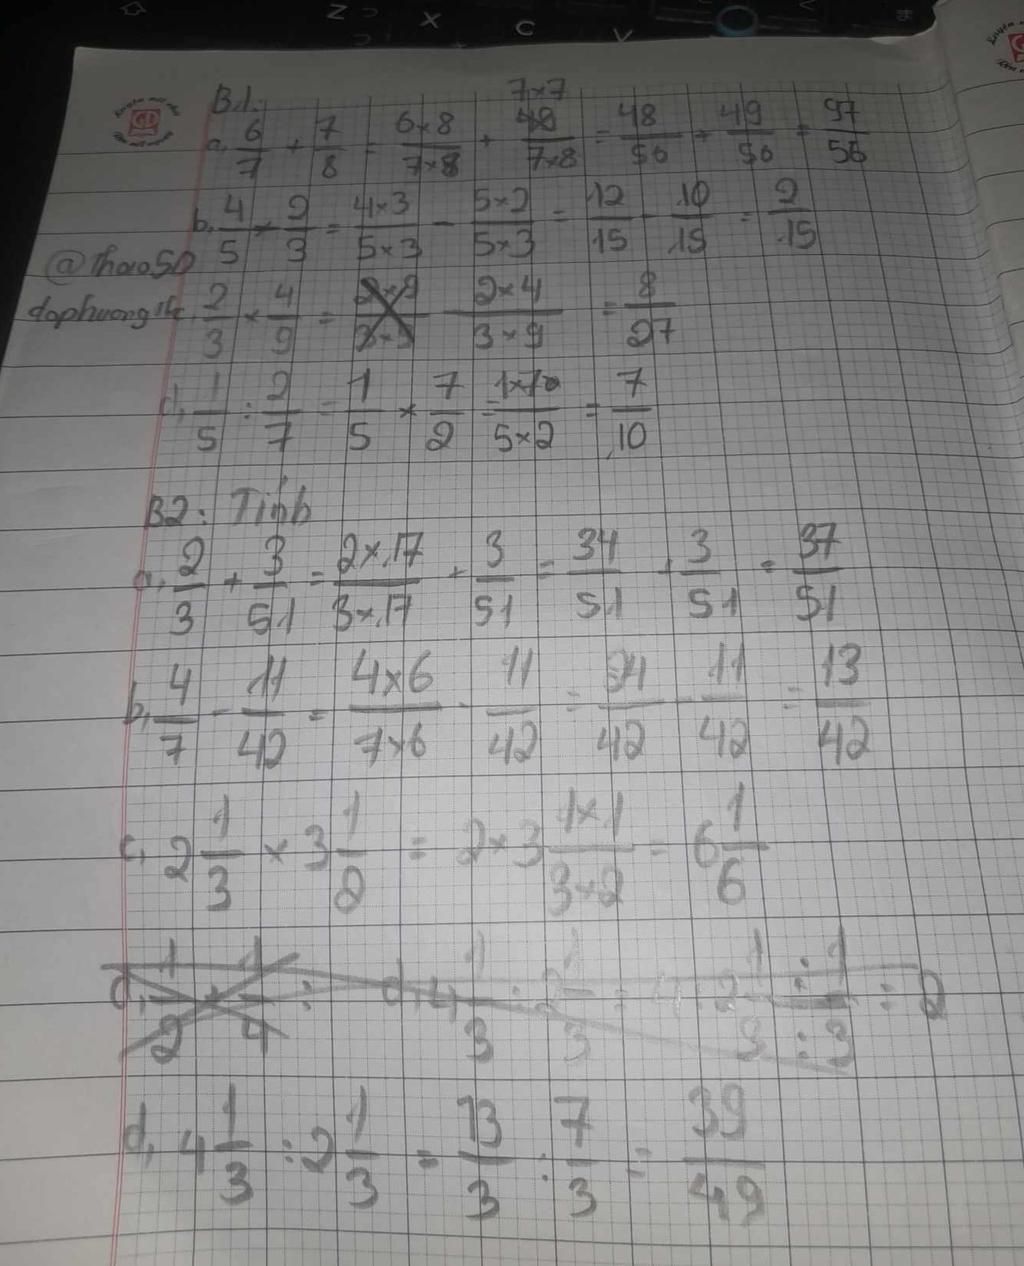 Z X C V
B1.
7×7
a, 6/7 + 7/8 = 6×8/7×8 + 49/7×8 = 48/56 + 49/56 = 97/56
b, 4/5 - 2/3 = 4×3/5×3 - 5×2/5×3 = 12/15 - 10/15 = 2/15
@Thao5D
daphuong1
c, 2/3 × 4/9 = 2×4/3×9 = 8/27
d, 1/5 : 2/7 = 1/5 × 7/2 = 1×7/5×2 = 7/10
B2: Tính
a, 2/3 + 3/51 = 2×17/3×17 + 3/51 = 34/51 + 3/51 = 37/51
b, 4/7 - 11/42 = 4×6/7×6 - 11/42 = 24/42 - 11/42 = 13/42
c, 2 1/3 × 3 1/2 = 2×3 1×1/3×2 = 6 1/6
d, 4 1/3 : 2 1/3 = 13/3 : 7/3 = 39/49